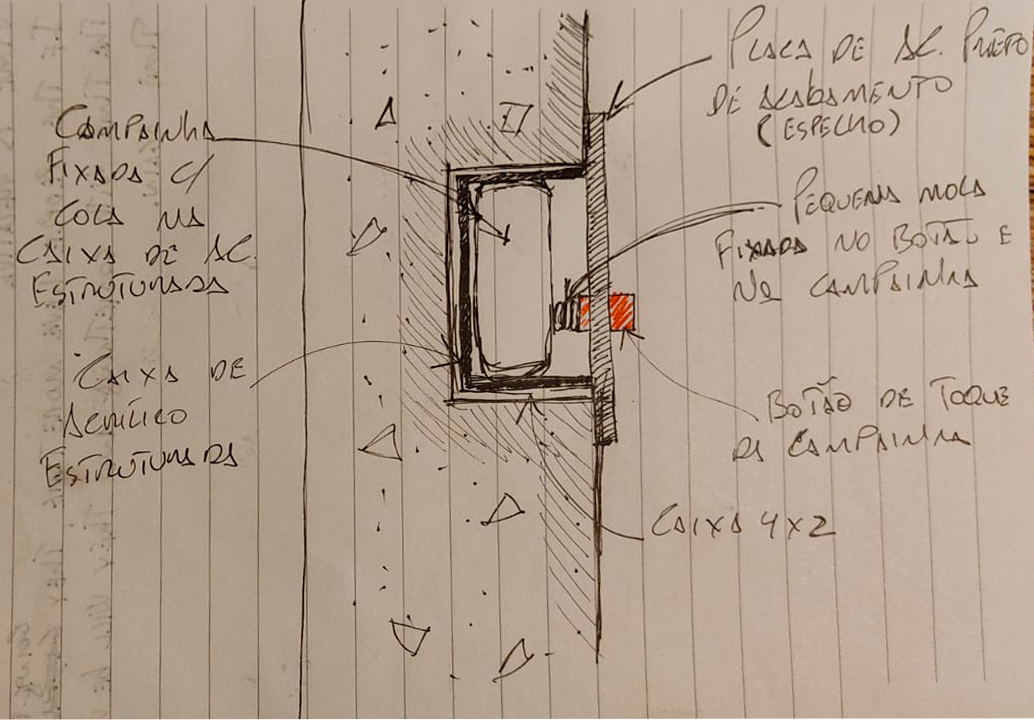 CAMPAINHA
FIXADA C/
COLA NA
CAIXA DE AC.
ESTRUTURADA
CAIXA DE
ACRÍLICO
ESTRUTURADA
PLACA DE AC. PRETO
DE ACABAMENTO
(ESPELHO)
PEQUENA MOLA
FIXADA NO BOTÃO E
NA CAMPAINHA
BOTÃO DE TOQUE
DA CAMPAINHA
CAIXA 4X2